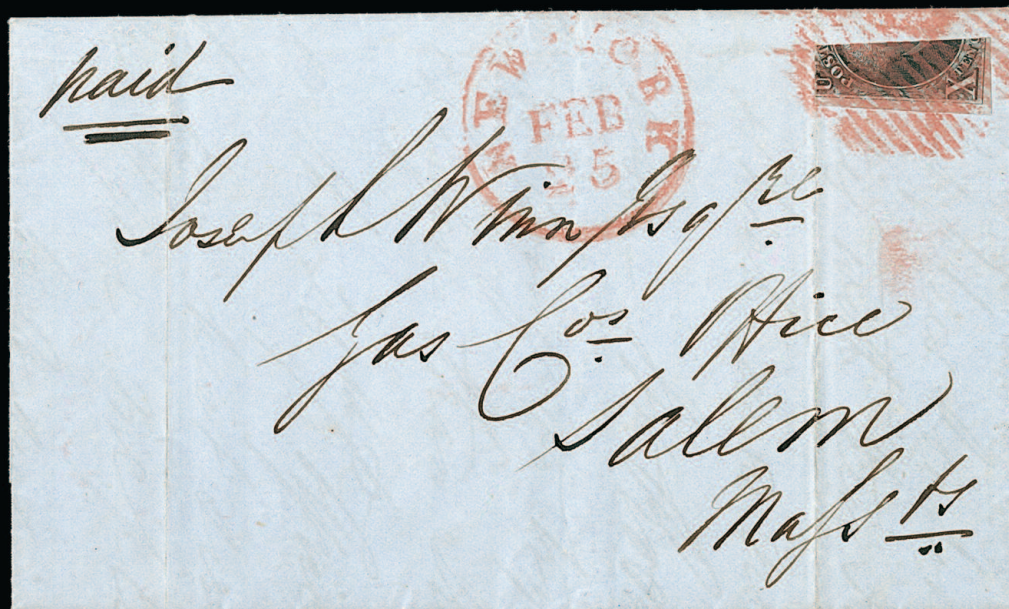 paid
NEW YORK
FEB
25
POST
X CENTS
Joseph Winn Esqre
Gas Cos Office
Salem
Massts